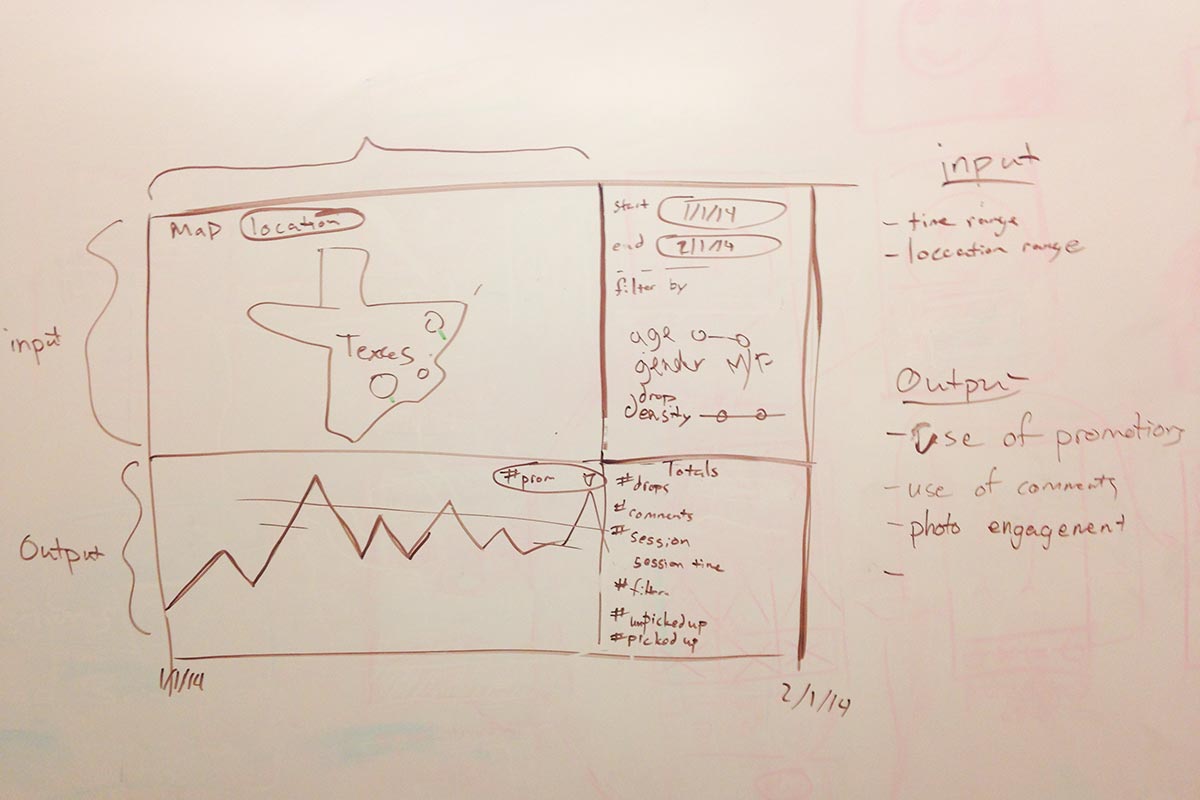 Map location
Texas
start 1/1/14
end 2/1/14
filter by
age
gender M/F
drop
density
#prom
Totals
#drops
#comments
# session
session time
#filter
#unpicked up
#picked up
1/1/14
2/1/14
input
Output
input
- time range
- loccation range
Output
- Use of promotions
- use of comments
- photo engagement
-